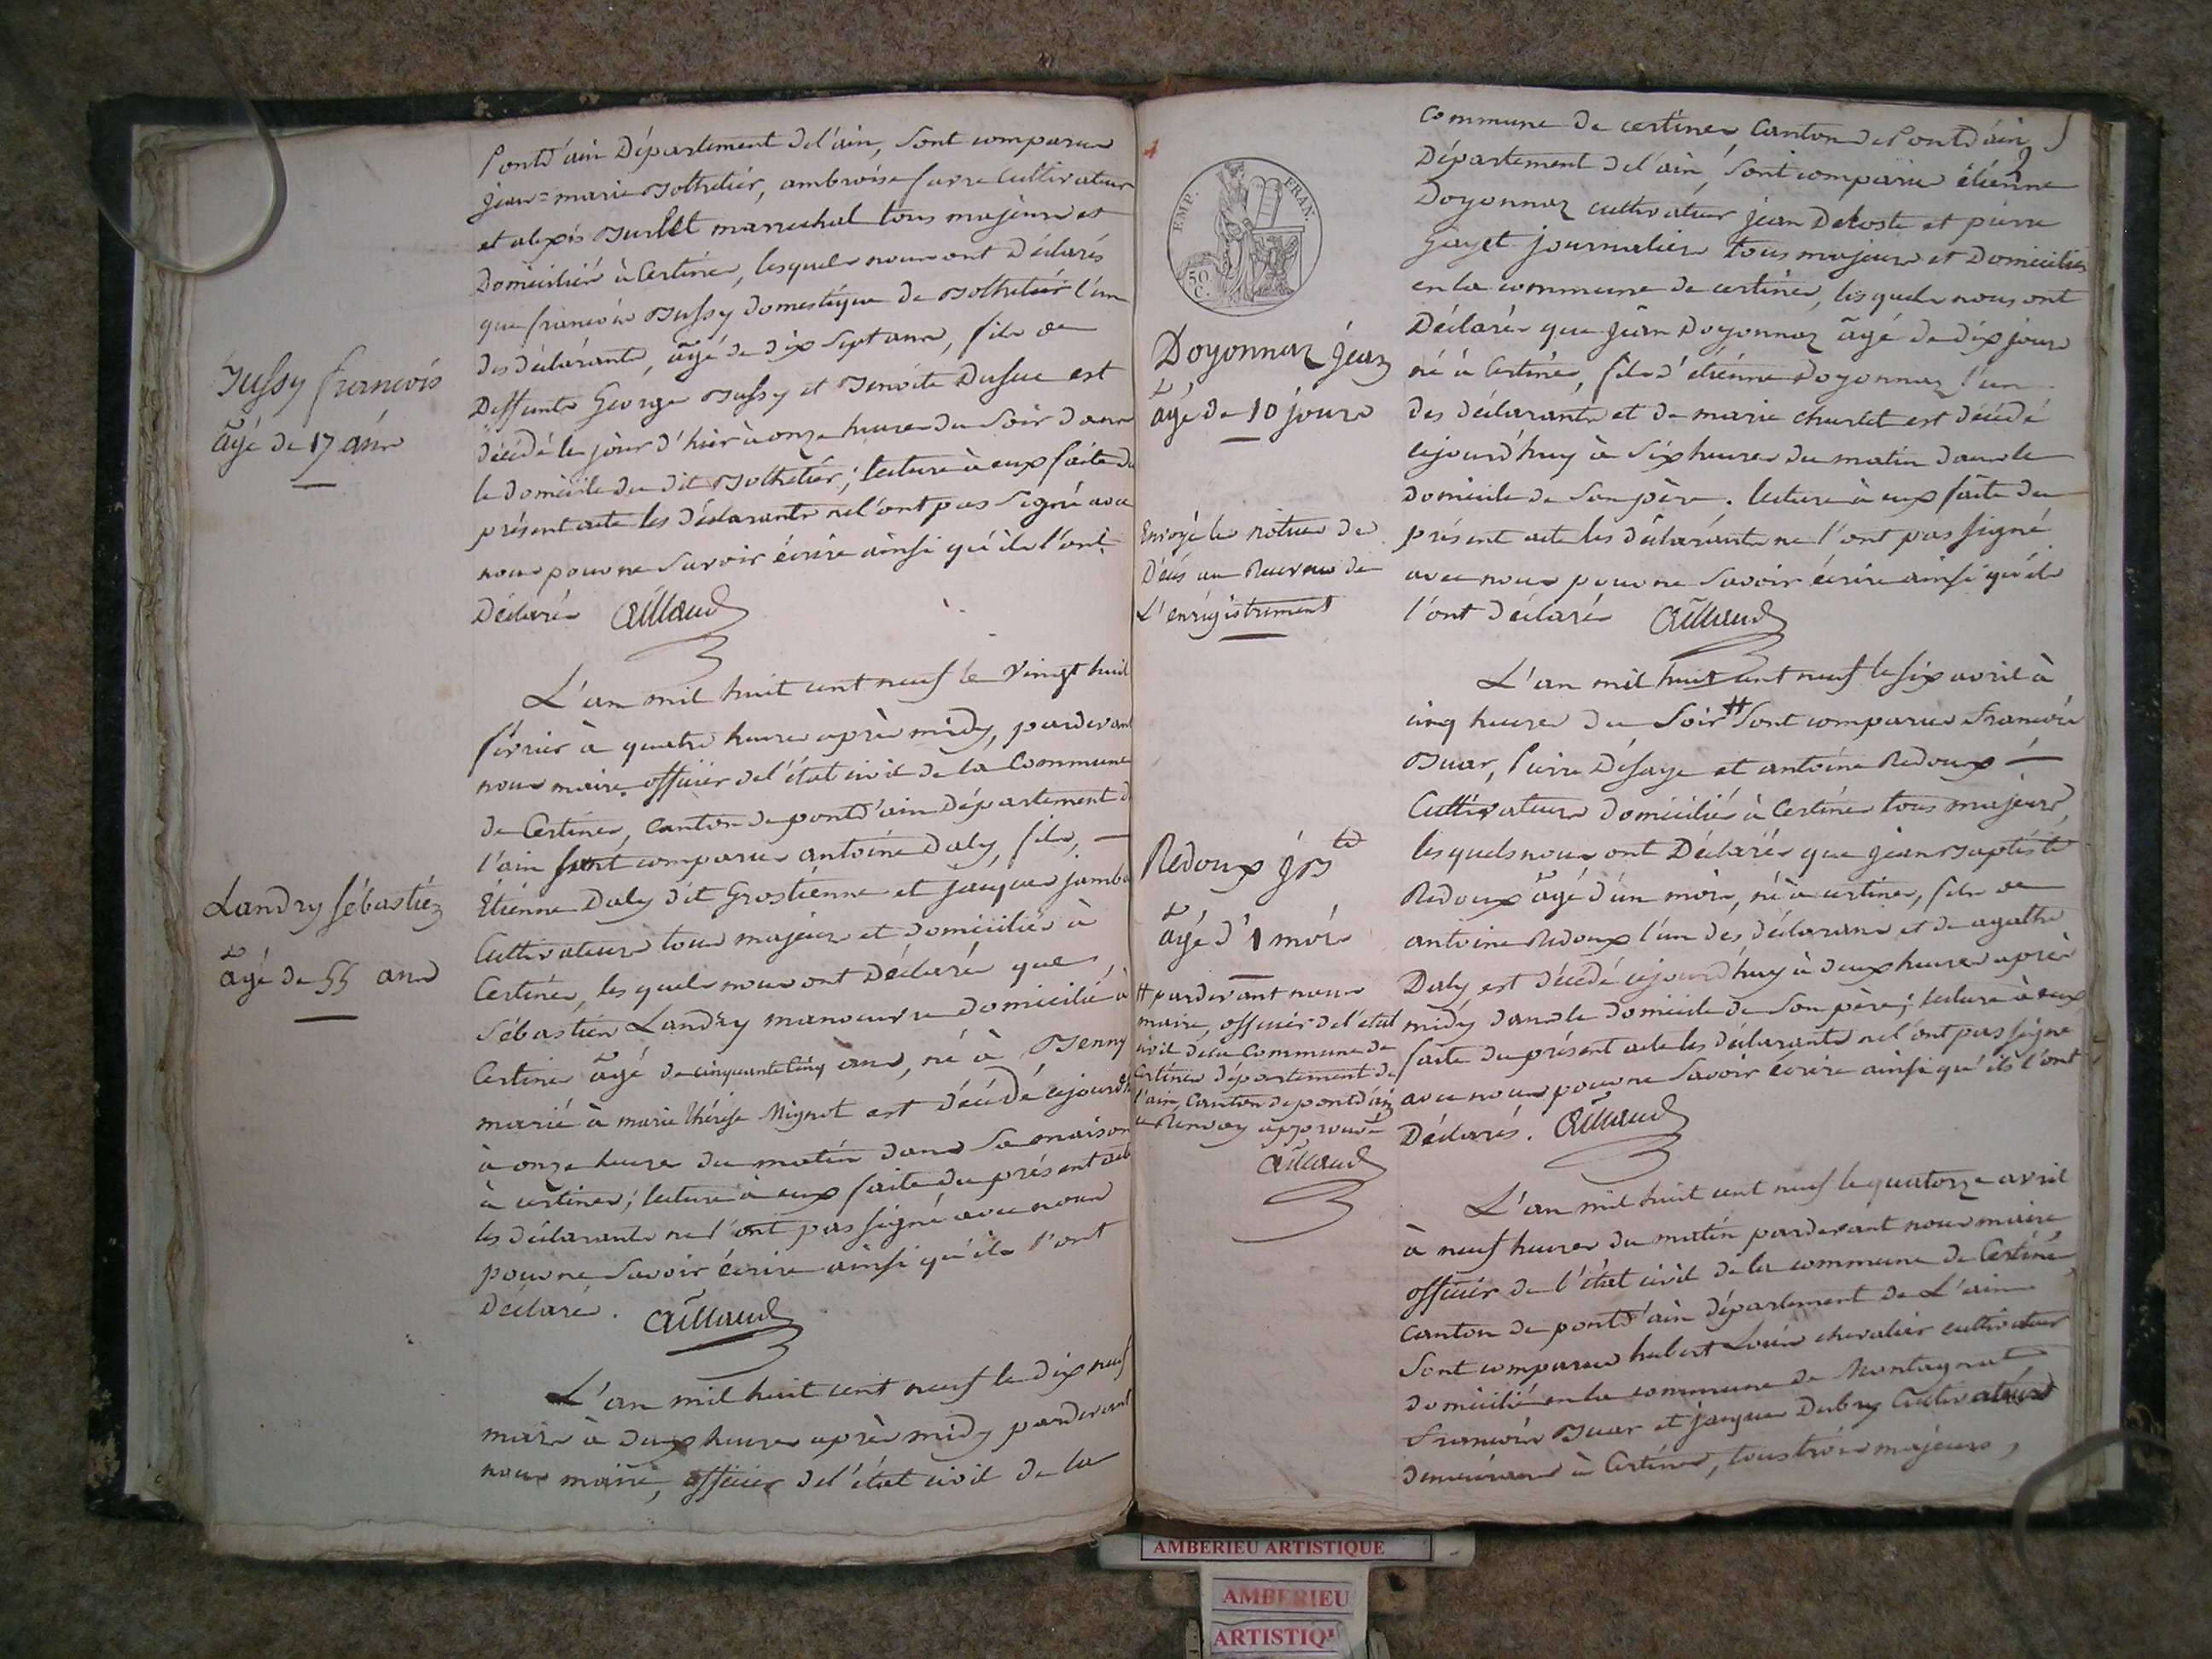 Pontd'ain Département de l'ain, Sont comparus
jean=marie Bolhetier, ambroise favre Cultivateurs
et alexis Burlet marrechal tous majeurs et
Domiciliés à Certines, lesquels nous ont Déclarés
que françois Bussy domestique de Bolhetier l'un
des déclarants, âgé de dix Sept ans, fils de
Deffunts George Bussy et Benoite Dufue est
décédé le jour d'hier à onze heures du Soir dans
le domicile du dit Bolhetier; lecture à eux faite du
présent acte les déclarants ne l'ont pas Signé avec
nous pour ne Savoir écrire ainsi qu'ils l'ont
Déclarés
Bussy françois
âgé de 17 ans
L'an mil huit cent neuf le Vingt huit
février à quatre heures après midy, pardevant
nous maire officier de l'état civil de la Commune
de Certines, Canton de pontd'ain département de
l'ain sont comparus antoine Daly, fils,
Etienne Daly dit Grostienne et jacques
Cultivateurs tous majeurs et domiciliés à
Certines, les quels nous ont Déclarés que
Sébastien Landry manoeuvre domicilié à
Certines âgé de cinquante cinq ans, né à Benny
marié à marie thérèse Mignot est décédé cejourd'h
à onze heures du matin dans Sa maison
à certines; lecture à eux faite du présent acte
les déclarants ne l'ont pas Signé avec nous
pour ne Savoir écrire ainsi qu'ils l'ont
Déclaré.
Landry Sébastien
âgé de 55 ans
L'an mil huit cent neuf le dix neuf
mars à deux heures après midy pardevant
nous maire, officier de l'état civil de la
4
EMP. FRAN.
50 C.
Commune de certines, Canton de Pontd'ain
Département de l'ain, Sont comparus étienne
Doyonnaz cultivateur jean Deloste et pierre
Gayet journaliers tous majeurs et Domiciliés
en la commune de certines, lesquels nous ont
Déclarés que jean Doyonnaz âgé de dix jours
né à Certines, fils d'étienne Doyonnaz l'un
des déclarants et de marie charlet est décédé
cejourd'huy à Six heures du matin dans le
domicile de Son père. lecture à eux faite du
présent acte les déclarants ne l'ont pas Signé
avec nous pour ne Savoir écrire ainsi qu'ils
l'ont déclarés
Doyonnaz jean
âgé de 10 jours
Envoyé les notices de
Décès au Receveur de
L'enrégistrement
L'an mil huit cent neuf le Six avril à
cinq heures du Soir # Sont comparus François
Buar, Pierre Désaye et antoine Redoux
Cultivateurs domiciliés à Certines tous majeurs,
lesquels nous ont Déclarés que jean Baptiste
Redoux âgé d'un mois, né à certines, fils de
antoine Redoux l'un des déclarans et de agathe
Daly est décédé cejourd'huy à deux heures après
midy dans le domicile de Son père; lecture à eux
faite du présent acte les déclarants ne l'ont pas Signé
avec nous pour ne Savoir écrire ainsi qu'ils l'ont
Déclarés.
Redoux j B te
âgé d'1 mois
# pardevant nous
maire, officier de l'état
civil de la Commune de
Certines département de
l'ain, Canton de pontd'ain
ce Renvoy approuvé
L'an mil huit cent neuf le quatorze avril
à neuf heures du matin pardevant nous maire
officier de l'état civil de la commune de Certines
Canton de pontd'ain département de L'ain
Sont comparus hubert Louis chevalier cultivateur
domicilié en la commune de Montagnat,
François Buar et jacques Dubry Cultivateurs
demeurans à Certines, tous trois majeurs,
AMBERIEU ARTISTIQUE
AMBERIEU
ARTISTIQU